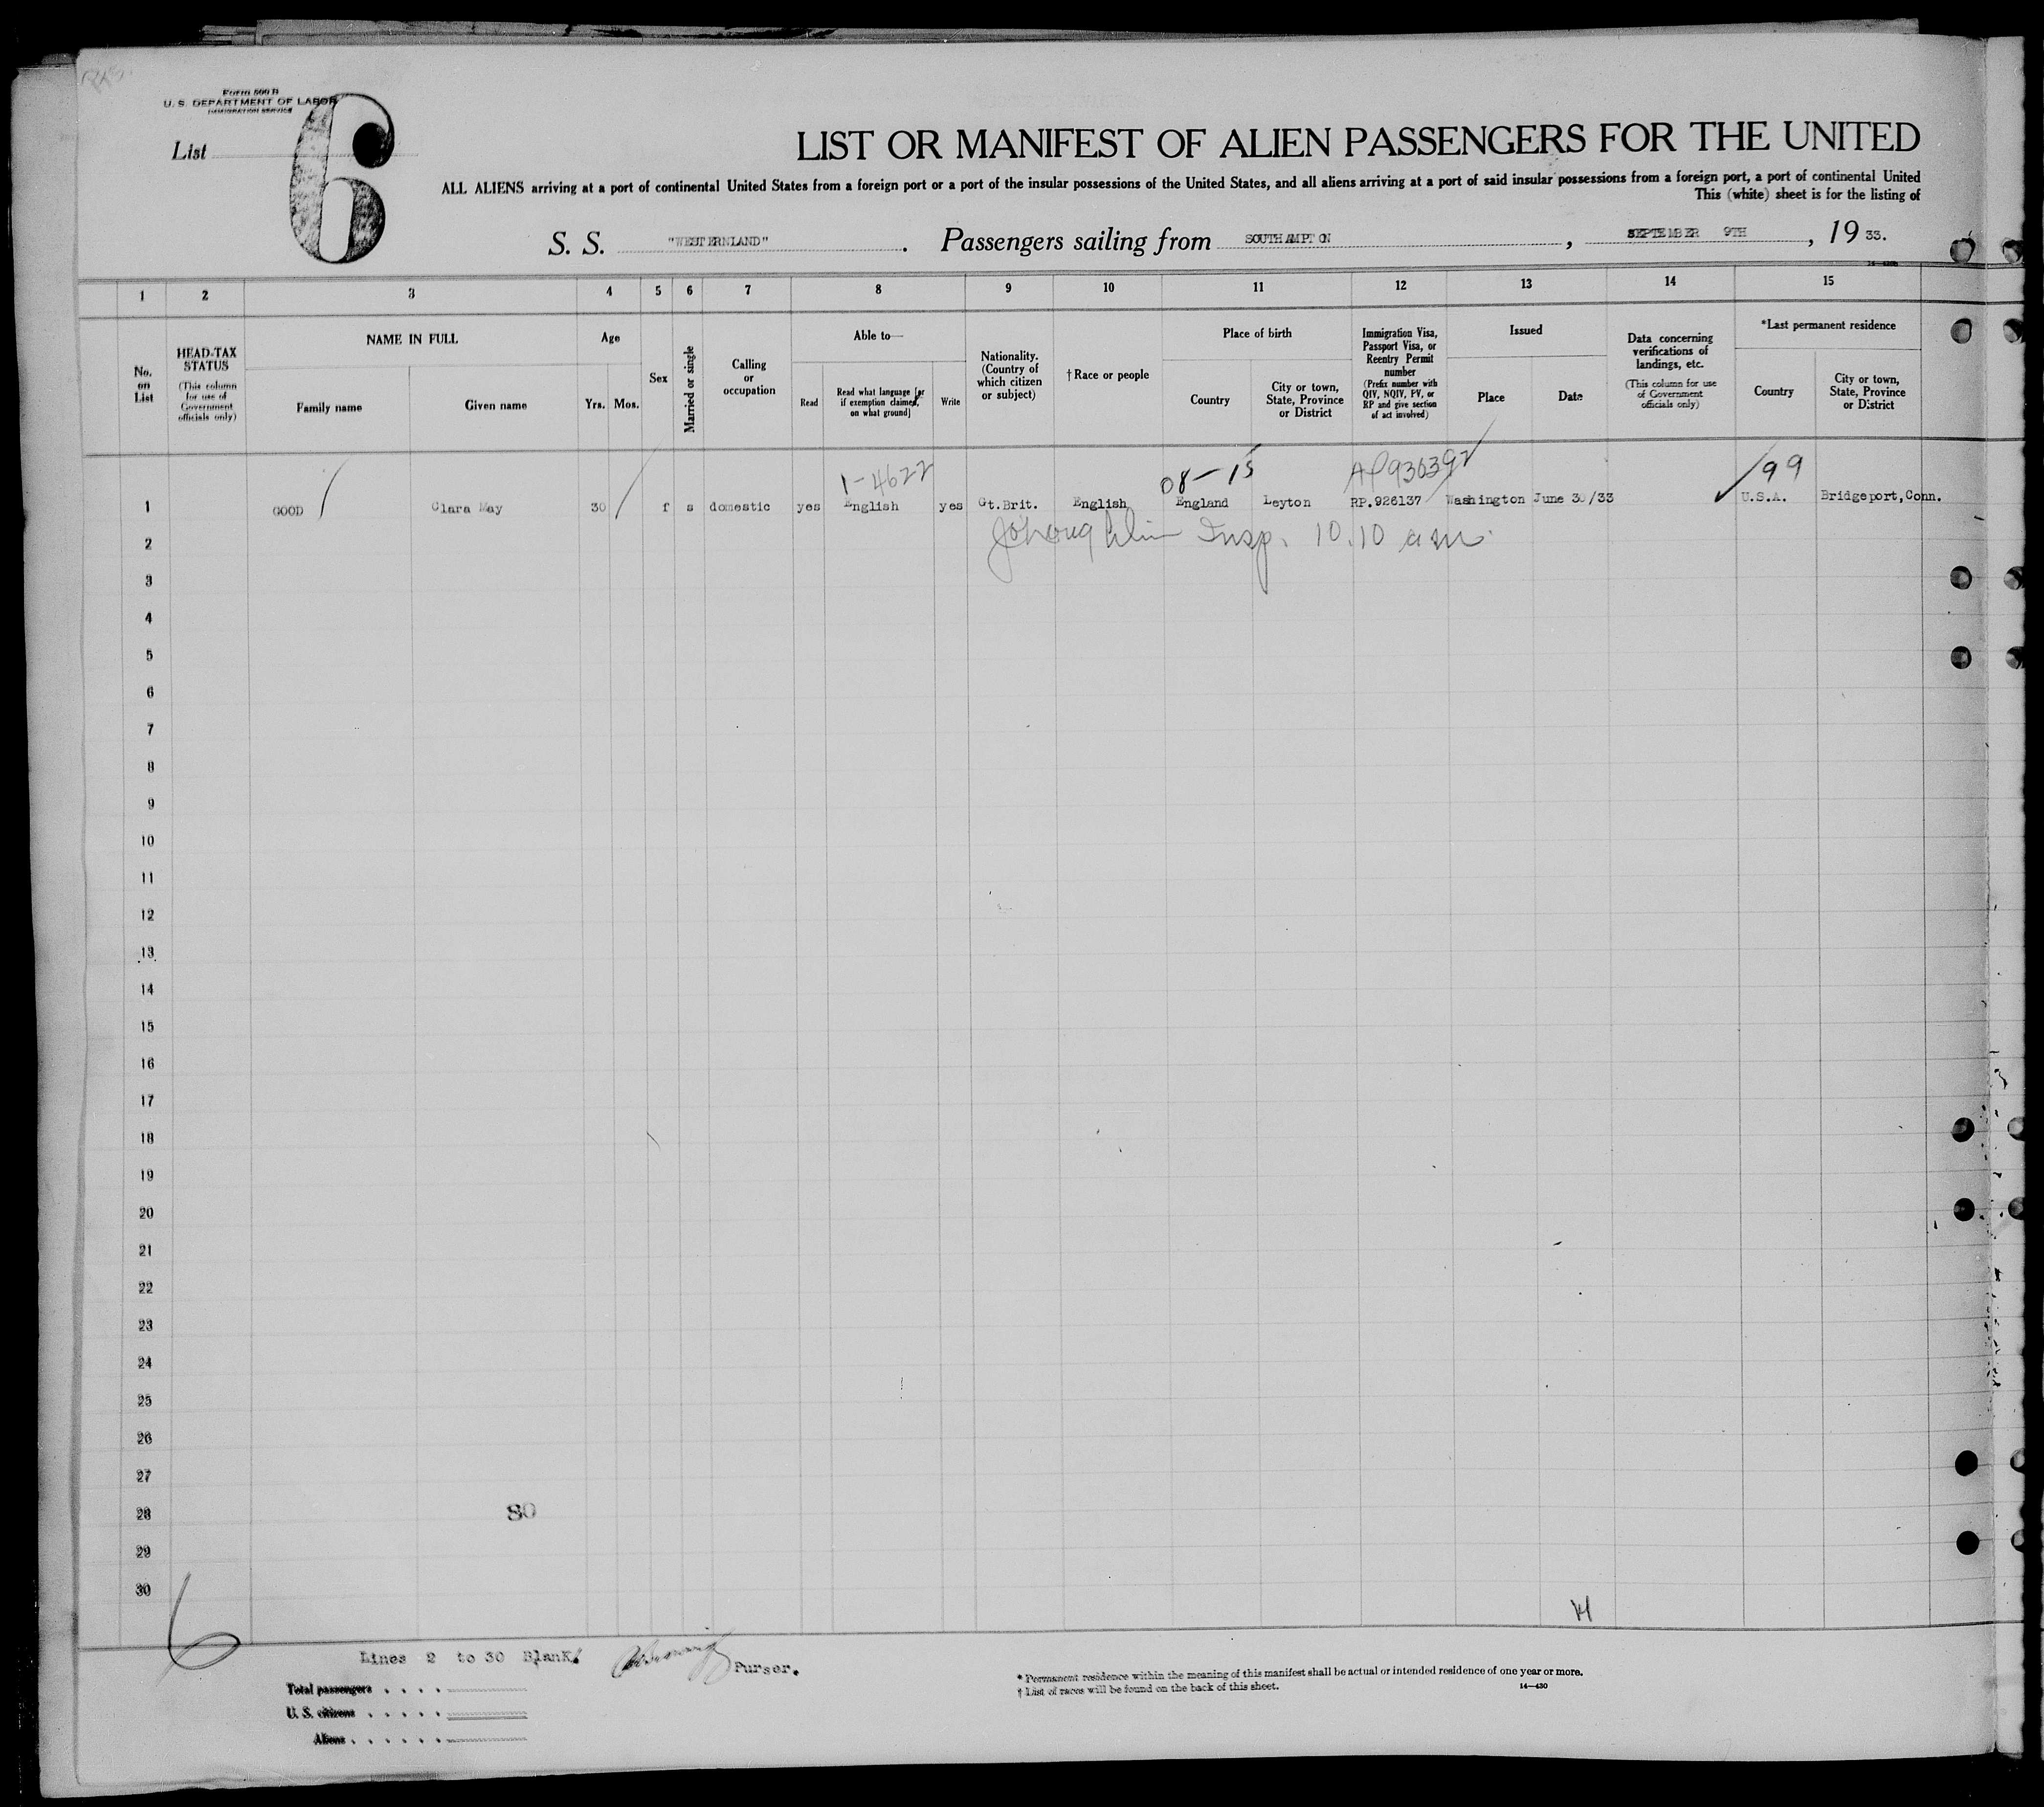 Form 500 B
U. S. DEPARTMENT OF LABOR
IMMIGRATION SERVICE
List 6
LIST OR MANIFEST OF ALIEN PASSENGERS FOR THE UNITED
ALL ALIENS arriving at a port of continental United States from a foreign port or a port of the insular possessions of the United States, and all aliens arriving at a port of said insular possessions from a foreign port, a port of continental United
This (white) sheet is for the listing of
S. S. "WESTERNLAND". Passengers sailing from SOUTHAMPTON, SEPTEMBER 9TH, 1933.
1 2 3 4 5 6 7 8 9 10 11 12 13 14 15
No. on List
HEAD-TAX STATUS
(This column for use of Government officials only)
NAME IN FULL
Family name
Given name
Age
Yrs. Mos.
Sex
Married or single
Calling or occupation
Able to—
Read
Read what language [or if exemption claimed, on what ground]
Write
Nationality. (Country of which citizen or subject)
†Race or people
Place of birth
Country
City or town, State, Province or District
Immigration Visa, Passport Visa, or Reentry Permit number
(Prefix number with QIV, NQIV, PV, or RP and give section of act involved)
Issued
Place
Date
Data concerning verifications of landings, etc.
(This column for use of Government officials only)
*Last permanent residence
Country
City or town, State, Province or District
1-4622 08-15 99
1 GOOD Clara May 30 f s domestic yes English yes Gt.Brit. English England Leyton RP.926137 Washington June 30/33 U.S.A. Bridgeport,Conn.
2 Insp. 10.10 am.
3
4
5
6
7
8
9
10
11
12
13
14
15
16
17
18
19
20
21
22
23
24
25
26
27
28 80
29
30
6
Lines 2 to 30 Blank. Purser.
Total passengers . . . .
U. S. citizens . . . . .
Aliens . . . . . .
* Permanent residence within the meaning of this manifest shall be actual or intended residence of one year or more.
† List of races will be found on the back of this sheet.
14—430